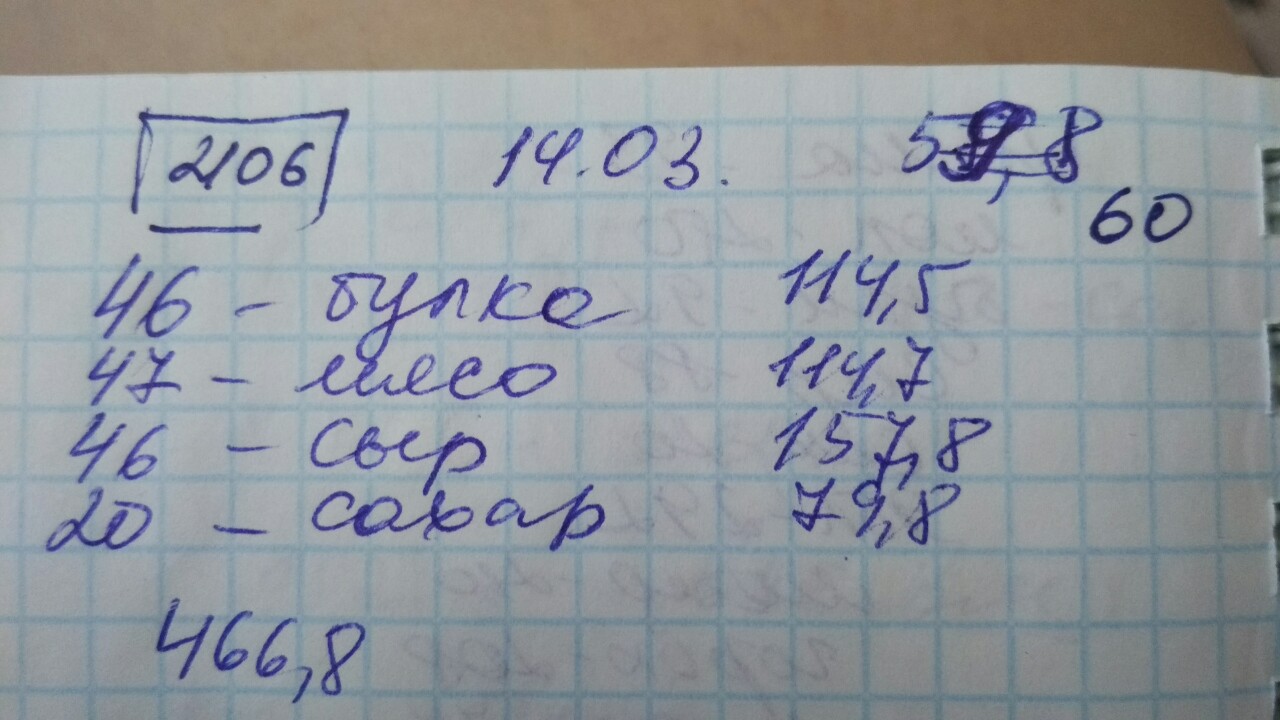 2106 14.03.
60
46 - булка 114,5
47 - мясо 114,7
46 - сыр 157,8
20 - сахар 79,8
466,8